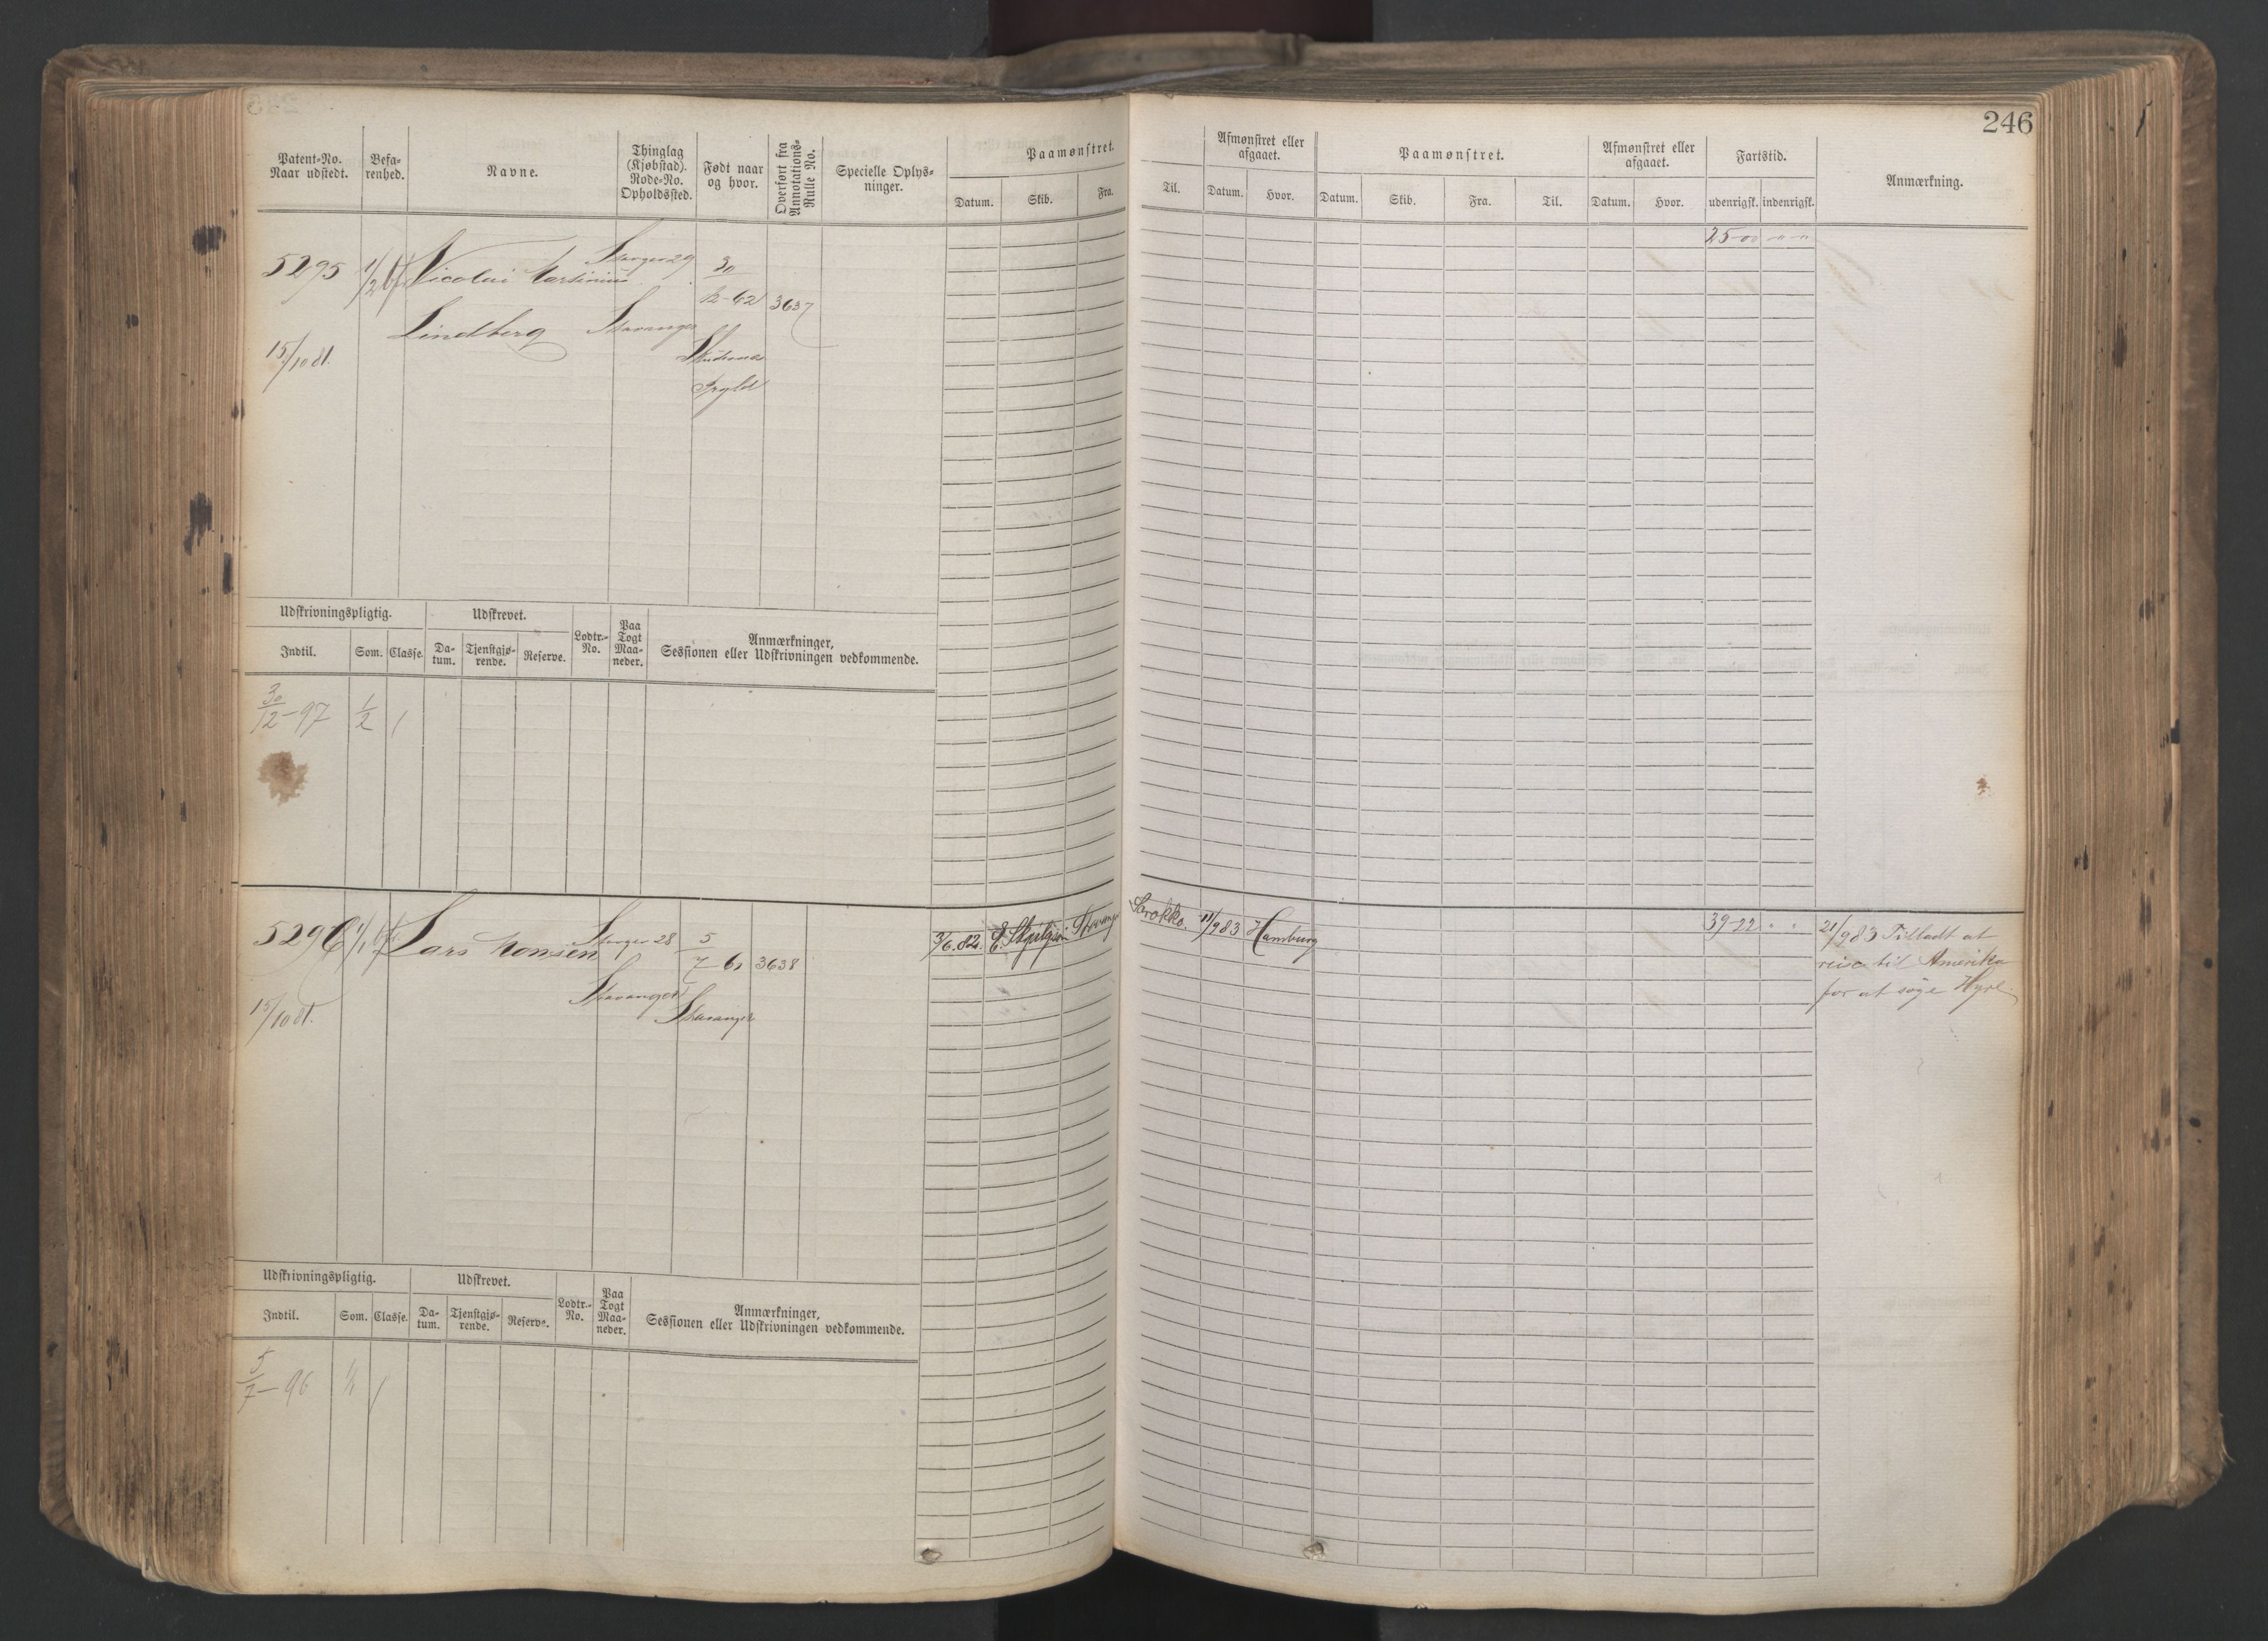 246
Patent-No.
Naar udstedt.
Befa-
renhed.
Navne.
Thinglag
(Kjøbstad).
Rode-No.
Opholdssted.
Født naar
og hvor.
Overført fra
Annotations-
Rulle No.
Specielle Oplys-
ninger.
Paamønstret.
Datum. Skib. Fra.
Til.
Afmønstret eller
afgaaet.
Datum. Hvor.
Paamønstret.
Datum. Skib. Fra. Til.
Afmønstret eller
afgaaet.
Datum. Hvor.
Fartstid.
udenrigsk. indenrigsk.
Anmærkning.
5295
1/2
Nicolai
Lindberg
29
Stavanger
30
12-62
3637
25-00
15/10 81.
Udskrivningspligtig.
Indtil. Som. Classe.
Udskrevet.
Da-
tum.
Tjenstgjø-
rende.
Reserve.
Lodtr.-
No.
Paa
Togt
Maa-
neder.
Anmærkninger,
Sessionen eller Udskrivningen vedkommende.
30/12-97 1/2 1
5296
1/1
Lars Monsen
28
Stavanger
5
7 61
Stavanger
3638
3/6.82.
Stavanger
11/9 83 Hamburg
39-22
21/9 83 Tilladt at
reise til Amerika
for at søge Hyre.
15/10 81.
Udskrivningspligtig.
Indtil. Som. Classe.
Udskrevet.
Da-
tum.
Tjenstgjø-
rende.
Reserve.
Lodtr.-
No.
Paa
Togt
Maa-
neder.
Anmærkninger,
Sessionen eller Udskrivningen vedkommende.
5/7-96 1/1 1